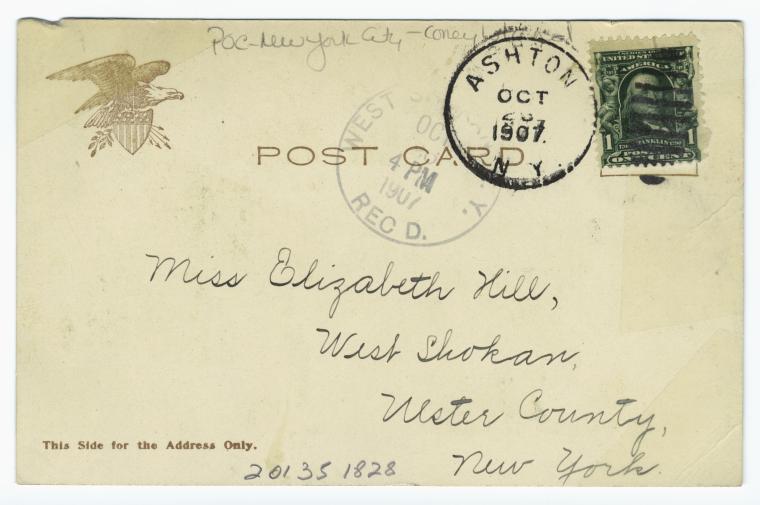 POC - New York City - Coney
ASHTON
OCT
1907
N Y.
SERIES 1902
UNITED STATES
OF AMERICA
1 1
FRANKLIN
POSTAGE
ONE CENT
WEST
OC
4 PM
1907
Y.
REC D.
POST CARD
Miss Elizabeth Hill,
West Shokan,
Ulster County,
New York.
This Side for the Address Only.
20135 1828